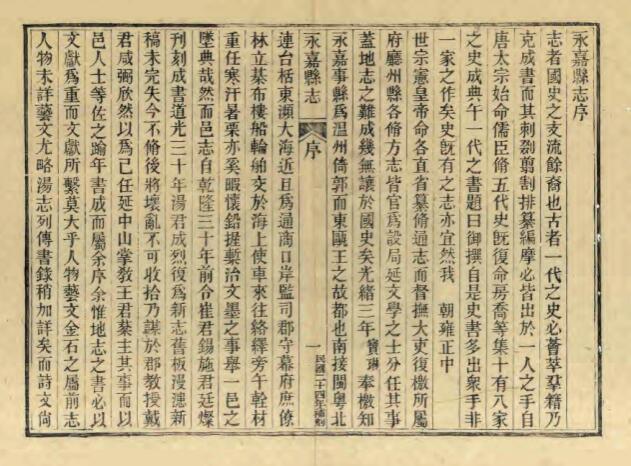 永嘉縣志序
志者國史之支流餘裔也古者一代之史必薈萃羣籍乃
克成書而其刺剟割排纂編摩必皆出於一人之手自
唐太宗始命儒臣脩五代史旣復命房喬等集十有八家
之史成典午一代之書題曰御撰自是史書多出衆手非
一家之作矣史旣有之志亦宜然我 朝雍正中
世宗憲皇帝命各直省纂脩通志而督撫大吏復檄所屬
府廳州縣各脩方志皆官爲設局延文學之士分任其事
蓋地志之難成幾無讓於國史矣光緒三年寶琳奉檄知
永嘉事縣爲溫州倚郭而東甌王之故都也南接閩粤北
永嘉縣志
序
一
民國二十四年補刻
連台栝東瀕大海近且爲通商口岸監司郡守幕府庶僚
林立基布樓船輪舶交於海上使車來往絡繹旁午斡材
重任寒汗暑栗亦奚暇懷鉛握槧治文墨之事舉一邑之
墜典哉然而邑志自乾隆三十年前令崔君錫施君廷燦
刋刻成書道光三十年湯君成烈復爲新志舊板漫漶新
稿未完失今不脩後將壞亂不可收拾乃謀於郡教授戴
君咸弼欣然以爲己任延中山掌敎王君棻主其事而以
邑人士等佐之踰年書成而屬余序余惟地志之書必以
文獻爲重而文獻所繫莫大乎人物藝文金石之屬前志
人物未詳藝文尤略湯志列傳書錄稍加詳矣而詩文尙